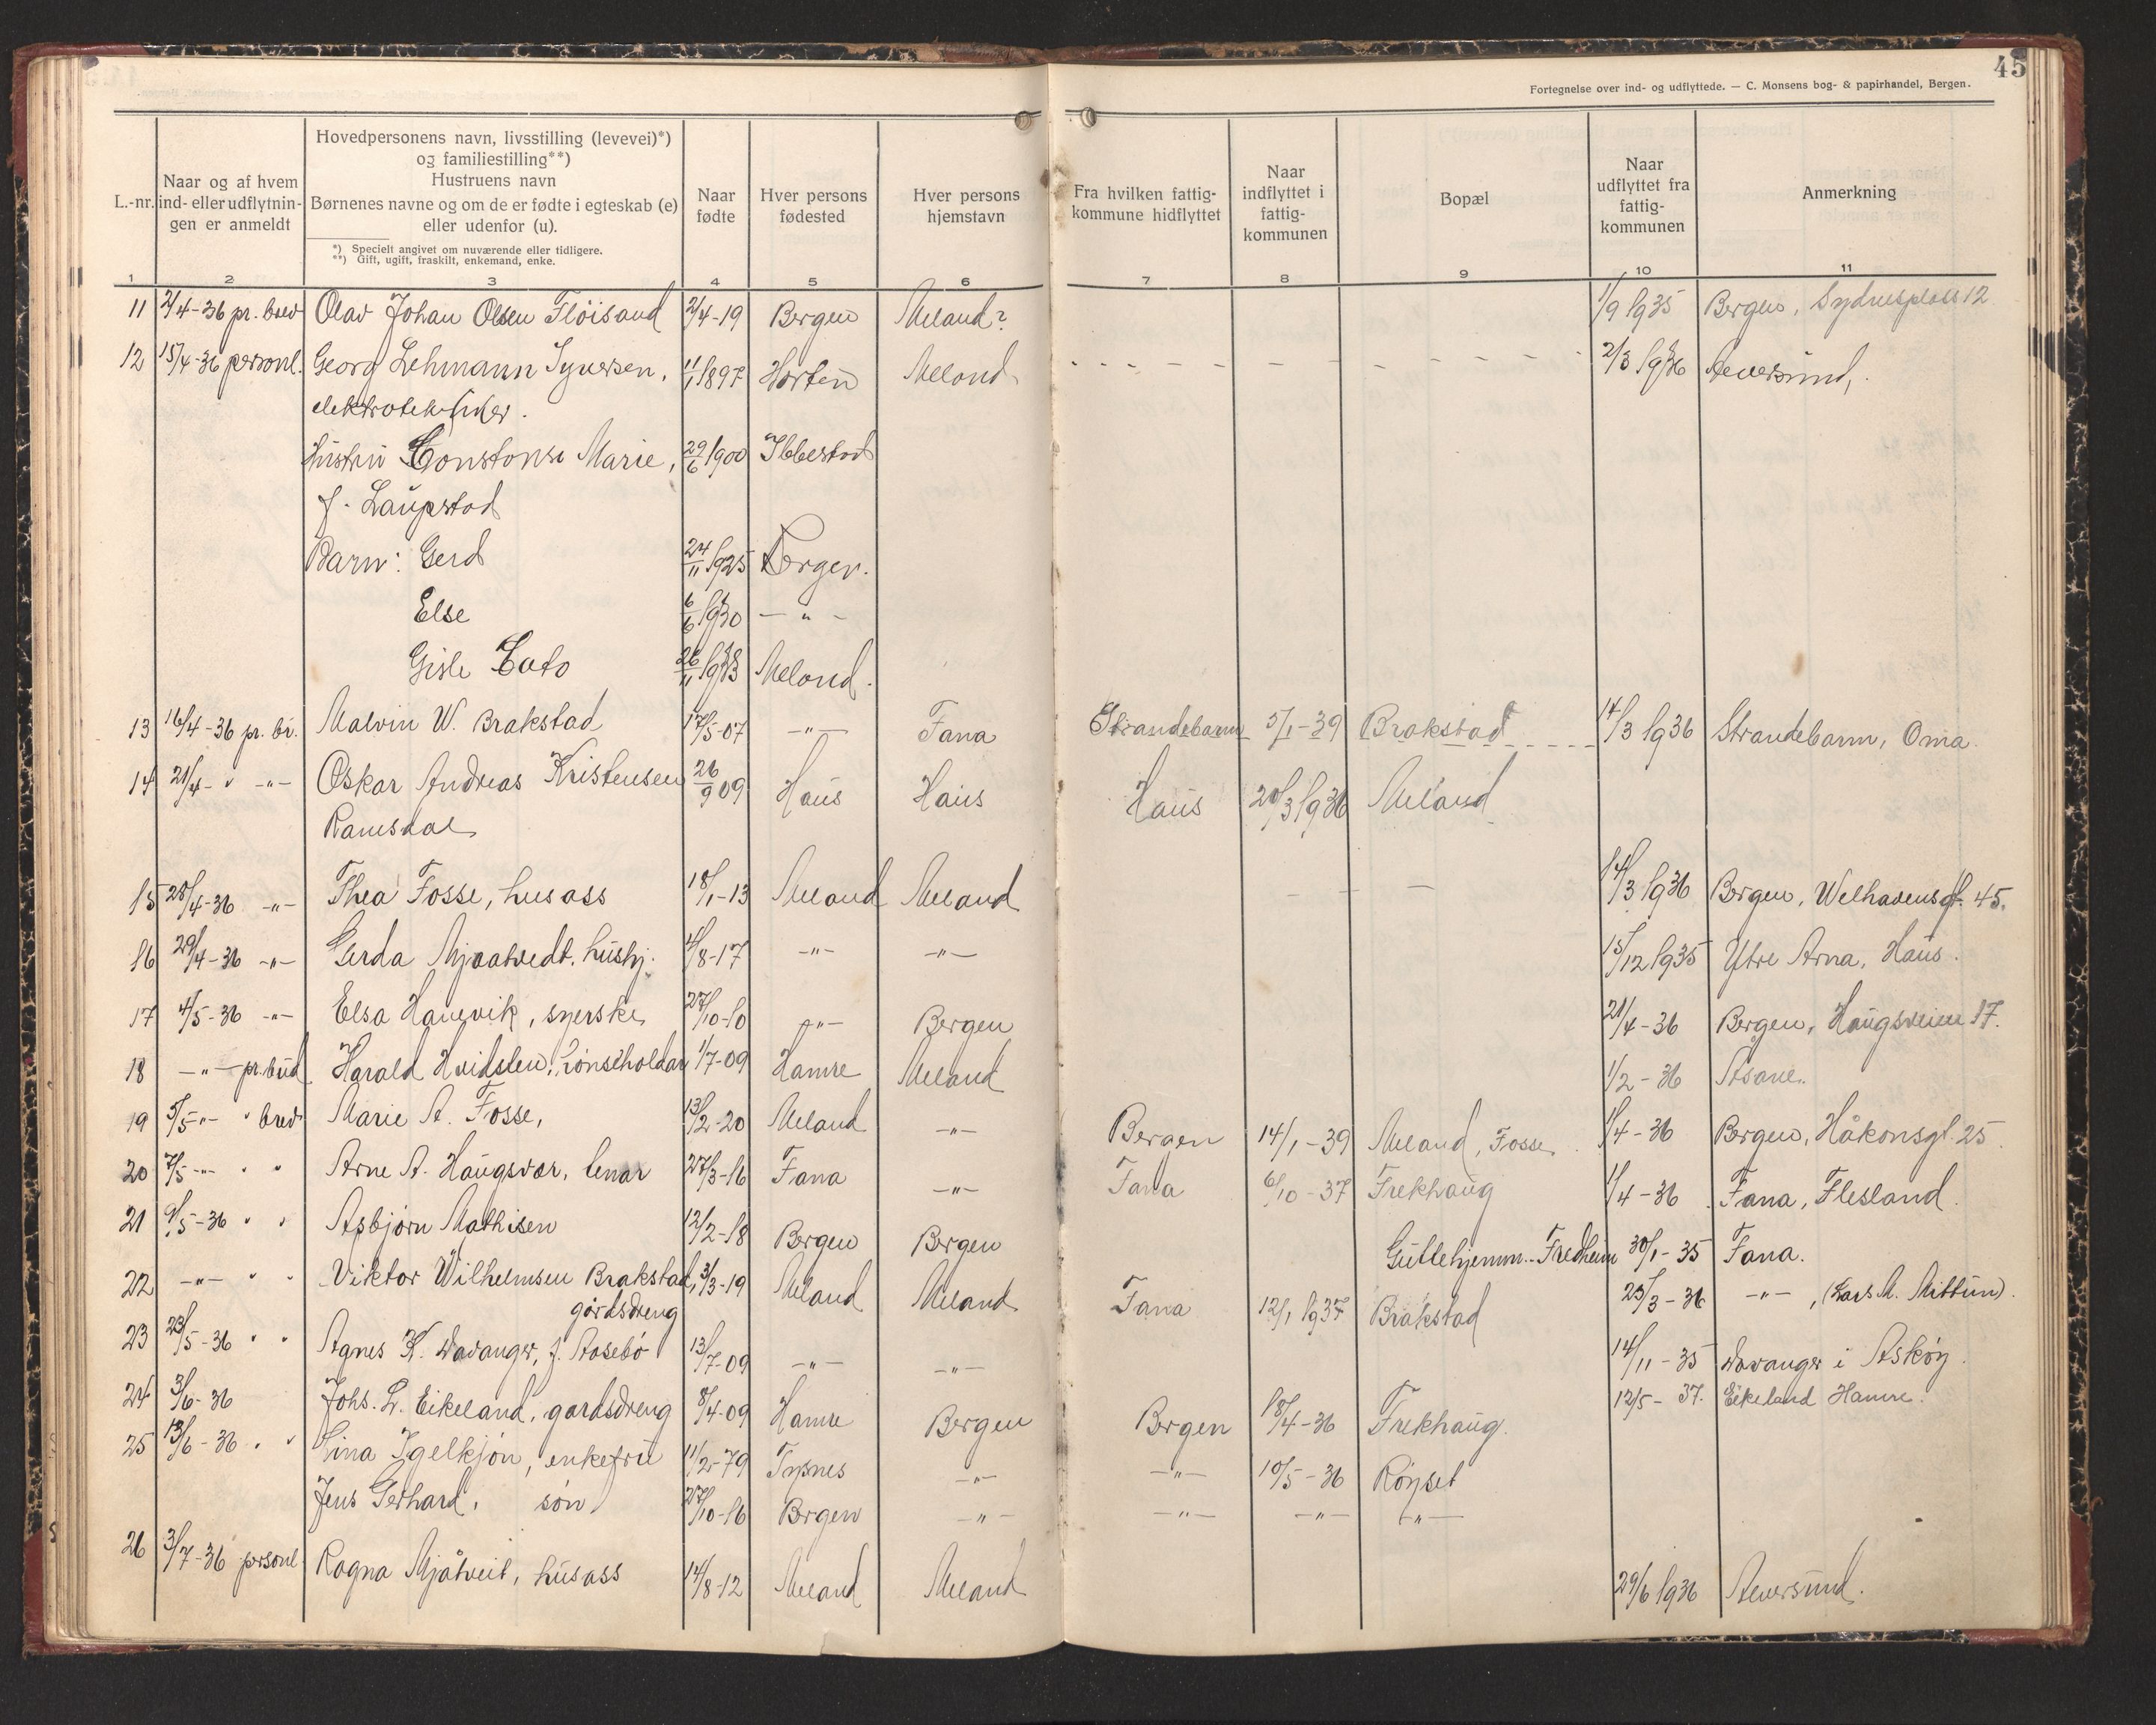 45
Fortegnelse over ind- og udflyttede. — C. Monsens bog- & papirhandel, Bergen.
L.-nr.
Naar og af hvem
ind- eller udflytnin-
gen er anmeldt
Hovedpersonens navn, livsstilling (levevei)*)
og familiestilling**)
Hustruens navn
Børnenes navne og om de er fødte i egteskab (e)
eller udenfor (u).
*) Specielt angivet om nuværende eller tidligere.
**) Gift, ugift, fraskilt, enkemand, enke.
Naar
fødte
Hver persons
fødested
Hver persons
hjemstavn
Fra hvilken fattig-
kommune hidflyttet
Naar
indflyttet i
fattig-
kommunen
Bopæl
Naar
udflyttet fra
fattig-
kommunen
Anmerkning
1 2 3 4 5 6 7 8 9 10 11
11 2/4-36 pr. brev Olav Johan Olsen Fløisand 2/4-19 Bergen Meland? 1/9 1935 Bergen, Sydnesplass 12
12 15/4-36 personl. Georg Lehmann Syversen, 11/1 1897 Horten Meland - - - - - - - - - - 2/3 1936
elektrotekniker.
Hustru Constanse Marie, 29/6 1900 Ibbestad
f. Laupstad
Barn: Gerd 24/11 1925 Bergen.
Else 6/6 1930 — " —
Gisle Cato 26/11 1933 Meland.
13 16/4-36 pr. br. Malvin W. Brakstad 17/5-07 —"— Fana Strandebarm 5/1-39 Brakstad 14/3 1936 Strandebarm, Oma.
14 21/4- " —"— Oskar Andreas Kristensen 26/9 09 Haus Haus Haus 20/3 1936 Meland
Ramsdal
15 28/4-36 —"— Thea Fosse, husass 18/1-13 Meland Meland — — — 14/3 1936 Bergen, Welhavensgt. 45.
16 29/4-36 —"— Gerda Mjaatvedt, hushj. 4/8-17 —"— —"— 15/12 1935 Ytre Arna, Haus.
17 4/5-36 —"— Elsa Hanevik, syerske 27/10-10 —"— Bergen 21/4-36 Bergen, Haugsveien 17.
18 —"— pr. bud Harald Hvidsten, 1/7-09 Hamre Meland 1/2-36 Åsane.
19 5/5 "— " brev Marie A. Fosse, 13/2-20 Meland —"— Bergen 14/1-39 Meland, Fosse. 1/4-36 Bergen, Håkonsgt. 25
20 7/5 —"— " " Arne A. Haugsvær, 27/3-16 Fana —"— Fana 6/10-37 Frekhaug 1/4-36 Fana, Flesland.
21 9/5-36 " " Asbjørn Mathisen 12/2-18 Bergen Bergen Guttehjemm. Fredheim 30/1-35 Fana.
22 —"— " " Viktor Wilhelmsen Brakstad, 3/3-19 Meland Meland Fana 12/1 1937 Brakstad 25/3-36 —"—, (Lars M. Mittun).
gårdsdreng
23 23/5-36 " " Agnes K. Davanger, f. Rosebø 13/7-09 —"— —"— 14/11-35 Davanger i Askøy.
24 3/6-36 Johs. L. Eikeland, gardsdreng 8/4-09 Hamre Bergen Bergen 18/4-36 Frekhaug. 12/5-37. Eikeland Hamre.
25 13/6-36 " " Lina Igelkjøn, enkefru 11/2-79 Tysnes —"— —"— 10/5-36 Røyset
Jens Gerhard, søn 27/10-16 Bergen —"— —"— —"— —"—
26 3/7-36 personl. Ragna Mjåtveit, husass 14/8-12 Meland Meland 29/6 1936